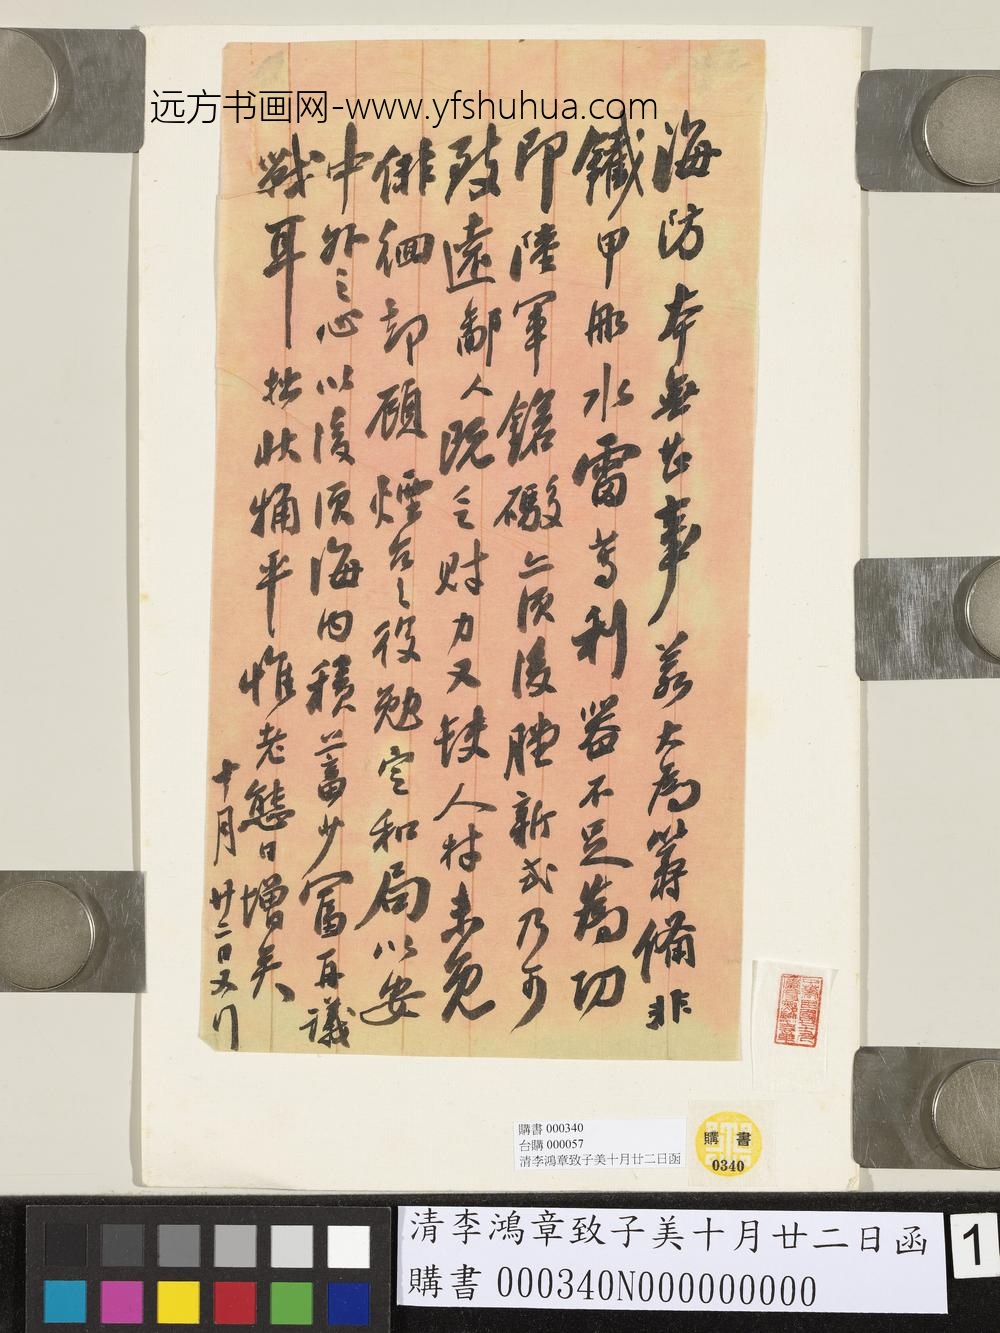 远方书画网-www.yfshuhua.com
海防本無甚事若大為籌備非
鐵甲船水雷等利器不足為功
即陸軍鎗礮亦須後膛新式乃可
致遠鄙人既乏財力又缺人材未免
徘徊却顧煙台之役勉定和局以安
中外之心以後須海內積蓄少富再議
戰耳拙狀稍平惟老態日增矣
十月廿二日又行
購書 000340
台購 000057
清李鴻章致子美十月廿二日函
購書
0340
清李鴻章致子美十月廿二日函
購書 000340N000000000
1